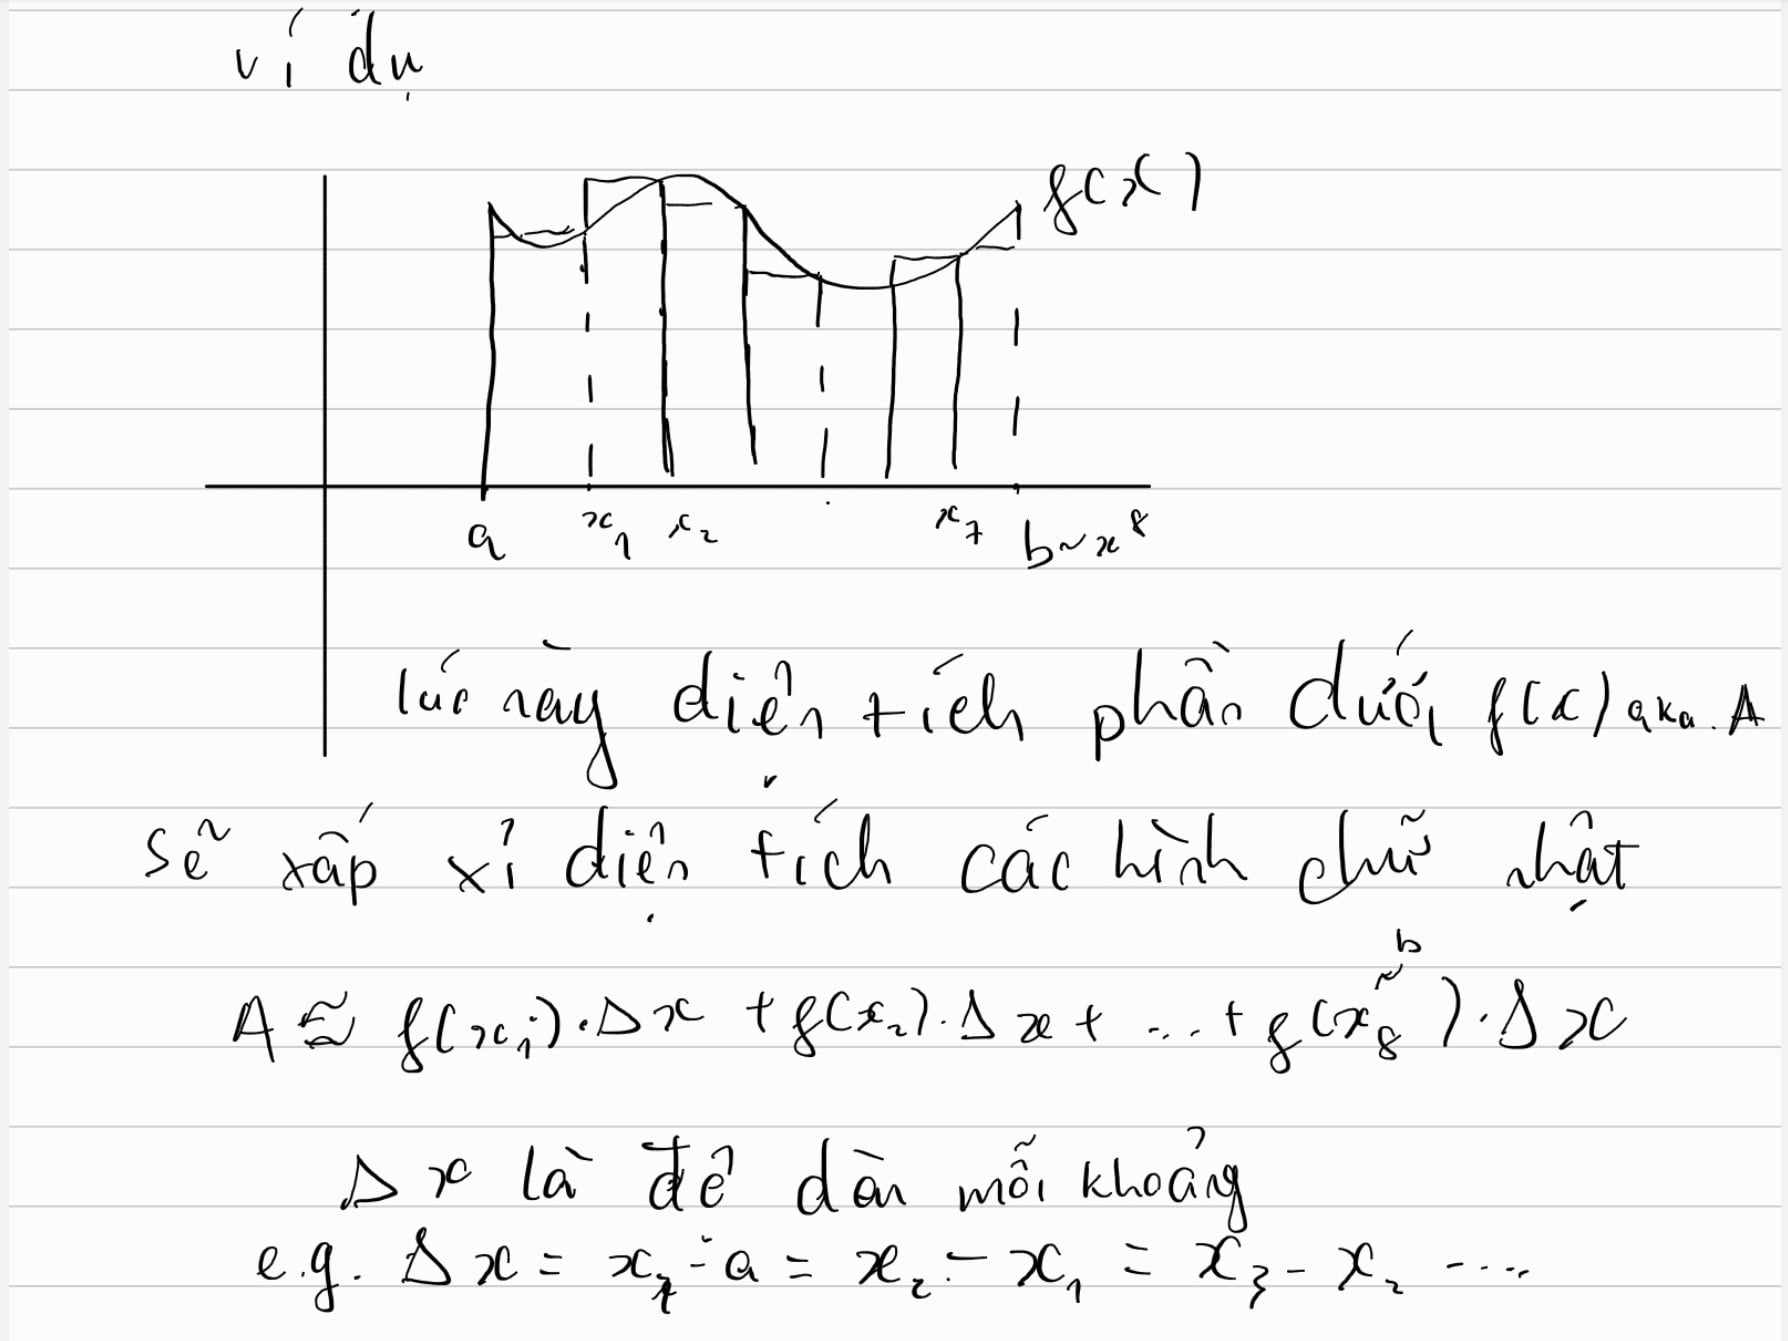 ví dụ
f(x)
a x₁ x₂ x₇ b ~ x⁸
lúc này diện tích phần dưới f(x) aka. A
sẽ xấp xỉ diện tích các hình chữ nhật
A ≈ f(x₁).Δx + f(x₂).Δx + ... + f(x₈ ~ b).Δx
Δx là để dàn mỗi khoảng
e.g. Δx = x₁ - a = x₂ - x₁ = x₃ - x₂ ....